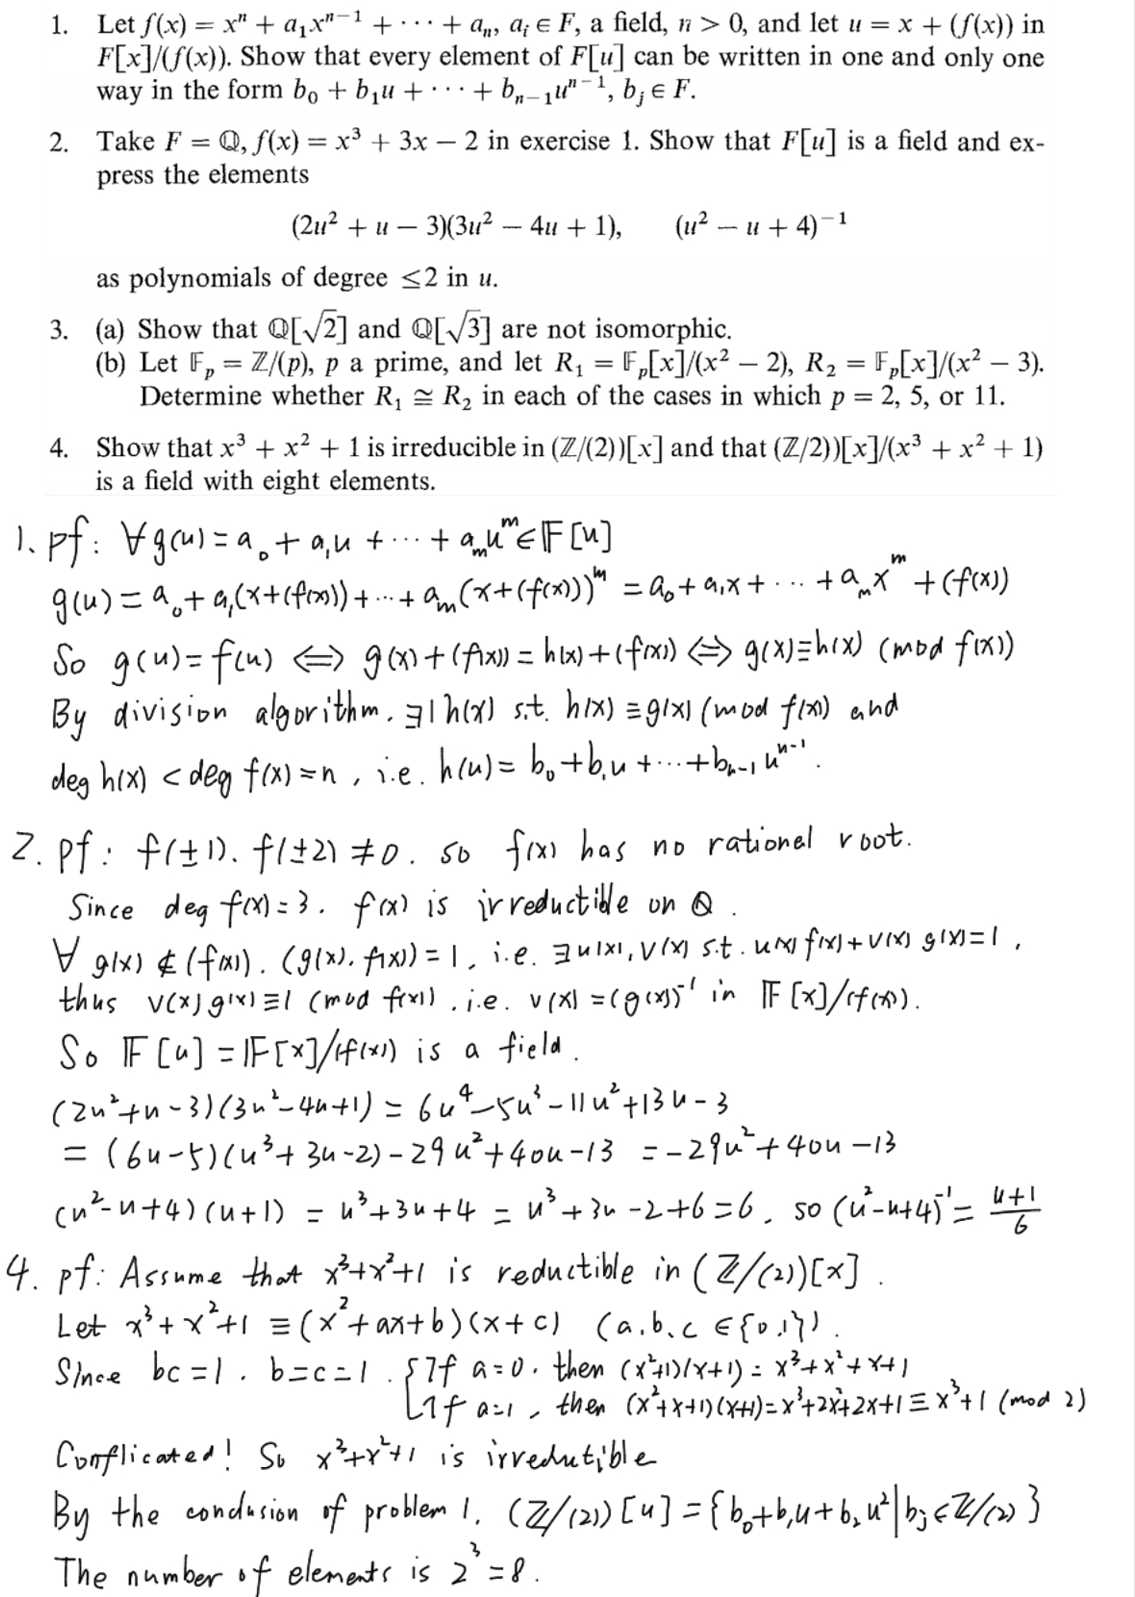 1. Let f(x) = xⁿ + a₁xⁿ⁻¹ + ··· + aₙ, aᵢ ∈ F, a field, n > 0, and let u = x + (f(x)) in
F[x]/(f(x)). Show that every element of F[u] can be written in one and only one
way in the form b₀ + b₁u + ··· + bₙ₋₁uⁿ⁻¹, bⱼ ∈ F.
2. Take F = ℚ, f(x) = x³ + 3x − 2 in exercise 1. Show that F[u] is a field and ex-
press the elements
(2u² + u − 3)(3u² − 4u + 1), (u² − u + 4)⁻¹
as polynomials of degree ≤2 in u.
3. (a) Show that ℚ[√2] and ℚ[√3] are not isomorphic.
(b) Let 𝔽ₚ = ℤ/(p), p a prime, and let R₁ = 𝔽ₚ[x]/(x² − 2), R₂ = 𝔽ₚ[x]/(x² − 3).
Determine whether R₁ ≅ R₂ in each of the cases in which p = 2, 5, or 11.
4. Show that x³ + x² + 1 is irreducible in (ℤ/(2))[x] and that (ℤ/2))[x]/(x³ + x² + 1)
is a field with eight elements.
1. pf: ∀ g(u) = a₀ + a₁u + ··· + aₘuᵐ ∈ 𝔽[u]
g(u) = a₀ + a₁(x+(f(x))) + ··· + aₘ(x+(f(x)))ᵐ = a₀ + a₁x + ··· + aₘxᵐ + (f(x))
So g(u) = f(u) ⟺ g(x) + (f(x)) = h(x) + (f(x)) ⟺ g(x) ≡ h(x) (mod f(x))
By division algorithm. ∃| h(x) s.t. h(x) ≡ g(x) (mod f(x)) and
deg h(x) < deg f(x) = n, i.e. h(u) = b₀ + b₁u + ··· + bₙ₋₁uⁿ⁻¹.
2. pf: f(±1). f(±2) ≠ 0. so f(x) has no rational root.
Since deg f(x) = 3. f(x) is irreductible on ℚ.
∀ g(x) ∉ (f(x)). (g(x), f(x)) = 1, i.e. ∃ u(x), v(x) s.t. u(x) f(x) + v(x) g(x) = 1,
thus v(x) g(x) ≡ 1 (mod f(x)), i.e. v(x) = (g(x))⁻¹ in 𝔽[x]/(f(x)).
So 𝔽[u] = 𝔽[x]/(f(x)) is a field.
(2u²+u−3)(3u²−4u+1) = 6u⁴−5u³−11u²+13u−3
= (6u−5)(u³+3u−2)−29u²+40u−13 = −29u²+40u−13
(u²−u+4)(u+1) = u³+3u+4 = u³+3u−2+6 = 6, so (u²−u+4)⁻¹ = (u+1)/6
4. pf: Assume that x³+x²+1 is reductible in (ℤ/(2))[x].
Let x³+x²+1 ≡ (x²+ax+b)(x+c) (a,b,c ∈ {0,1}).
Since bc = 1. b=c=1. { If a=0. then (x²+1)(x+1) = x³+x²+x+1
If a=1, then (x²+x+1)(x+1) = x³+2x²+2x+1 ≡ x³+1 (mod 2)
Conflicated! So x³+x²+1 is irredutible
By the conclusion of problem 1, (ℤ/(2))[u] = {b₀+b₁u+b₂u² | bⱼ ∈ ℤ/(2)}
The number of elements is 2³ = 8.